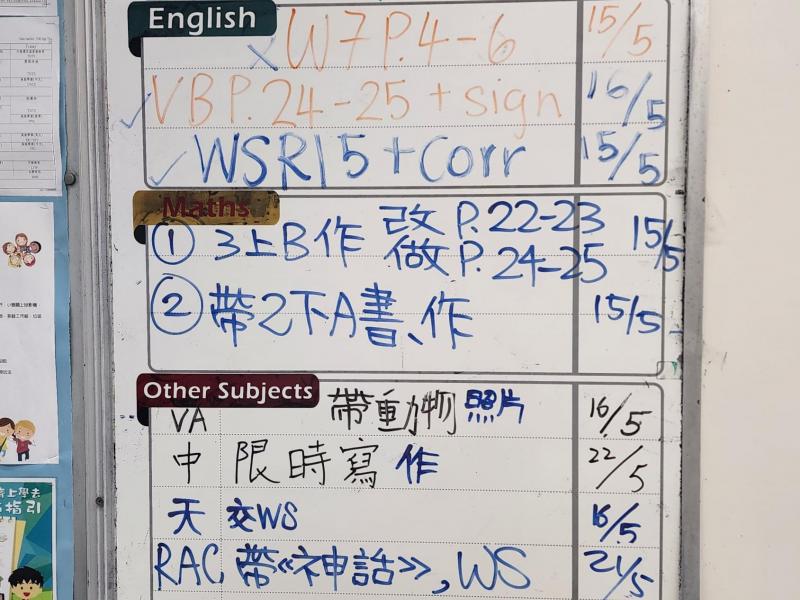 English
W7 P.4-6 15/5
VB P.24-25 + sign 16/5
WSR15 + Corr 15/5
Maths
① 3上B作 改 P.22-23 15/5
做 P.24-25
② 帶2下A書、作 15/5
Other Subjects
VA 帶動物照片 16/5
中 限時寫作 22/5
天 交WS 16/5
RAC 帶《神話》, WS 21/5
指引